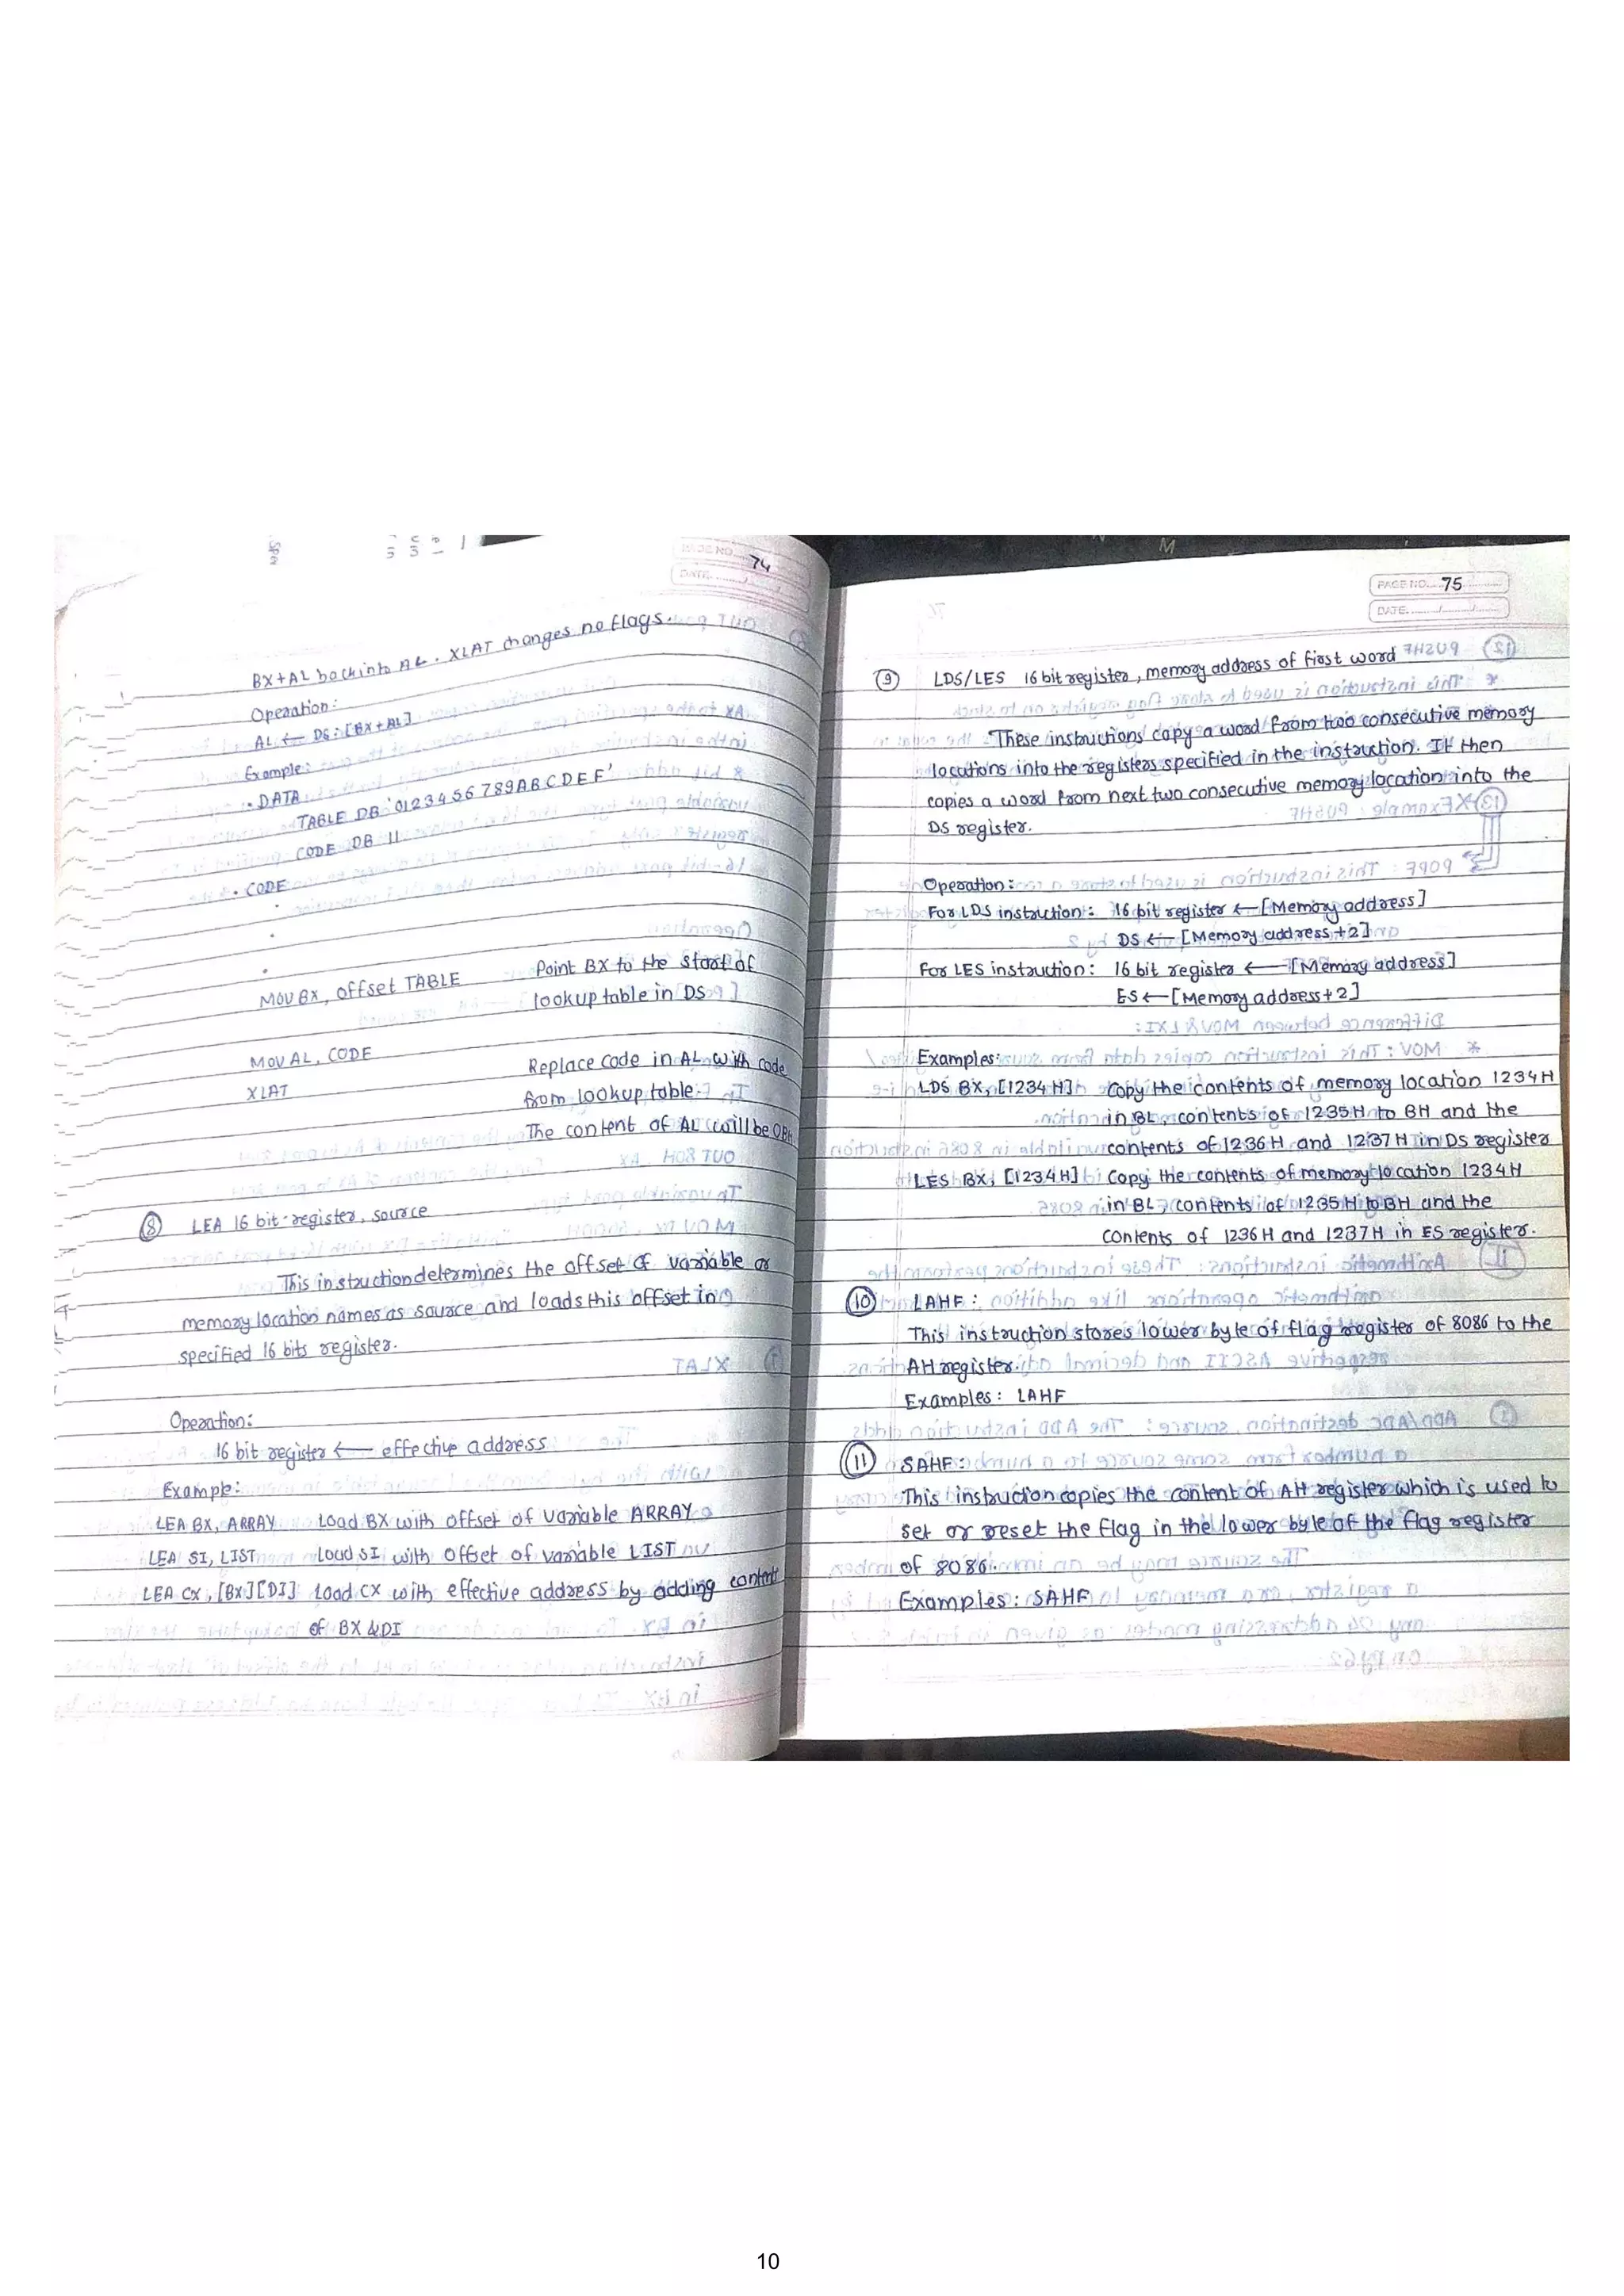 PAGE NO. 74
DATE
BX+AL back into AL. XLAT changes no flags.
Operation:
AL ← DS:[BX+AL]
Example:
.DATA
TABLE DB '0123456789ABCDEF'
CODE DB 11
.CODE
.
.
.
MOV BX, offset TABLE Point BX to the start of
lookup table in DS
MOV AL, CODE Replace code in AL with code
XLAT from lookup table.
The content of AL will be OBH
8 LEA 16 bit-register, source
This instruction determines the offset of variable or
memory location names as source and loads this offset in
specified 16 bits register.
Operation:
16 bit register ← effective address
Example:
LEA BX, ARRAY Load BX with offset of variable ARRAY
LEA SI, LIST Load SI with offset of variable LIST
LEA CX, [BX][DI] Load CX with effective address by adding content
of BX & DI
PAGE NO. 75
DATE
9 LDS/LES 16 bit register, memory address of first word
These instructions copy a word from two consecutive memory
locations into the registers specified in the instruction. It then
copies a word from next two consecutive memory location into the
DS register.
Operation:
For LDS instruction: 16 bit register ← [Memory address]
DS ← [Memory address+2]
For LES instruction: 16 bit register ← [Memory address]
ES ← [Memory address+2]
Examples:
LDS BX, [1234H] Copy the contents of memory location 1234H
in BL, contents of 1235H to BH and the
contents of 1236H and 1237H in DS register
LES BX, [1234H] Copy the contents of memory location 1234H
in BL, contents of 1235H to BH and the
contents of 1236H and 1237H in ES register.
10 LAHF:
This instruction stores lower byte of flag register of 8086 to the
AH register.
Examples: LAHF
11 SAHF:
This instruction copies the content of AH register which is used to
set or reset the flag in the lower byte of the flag register
of 8086.
Examples: SAHF
10